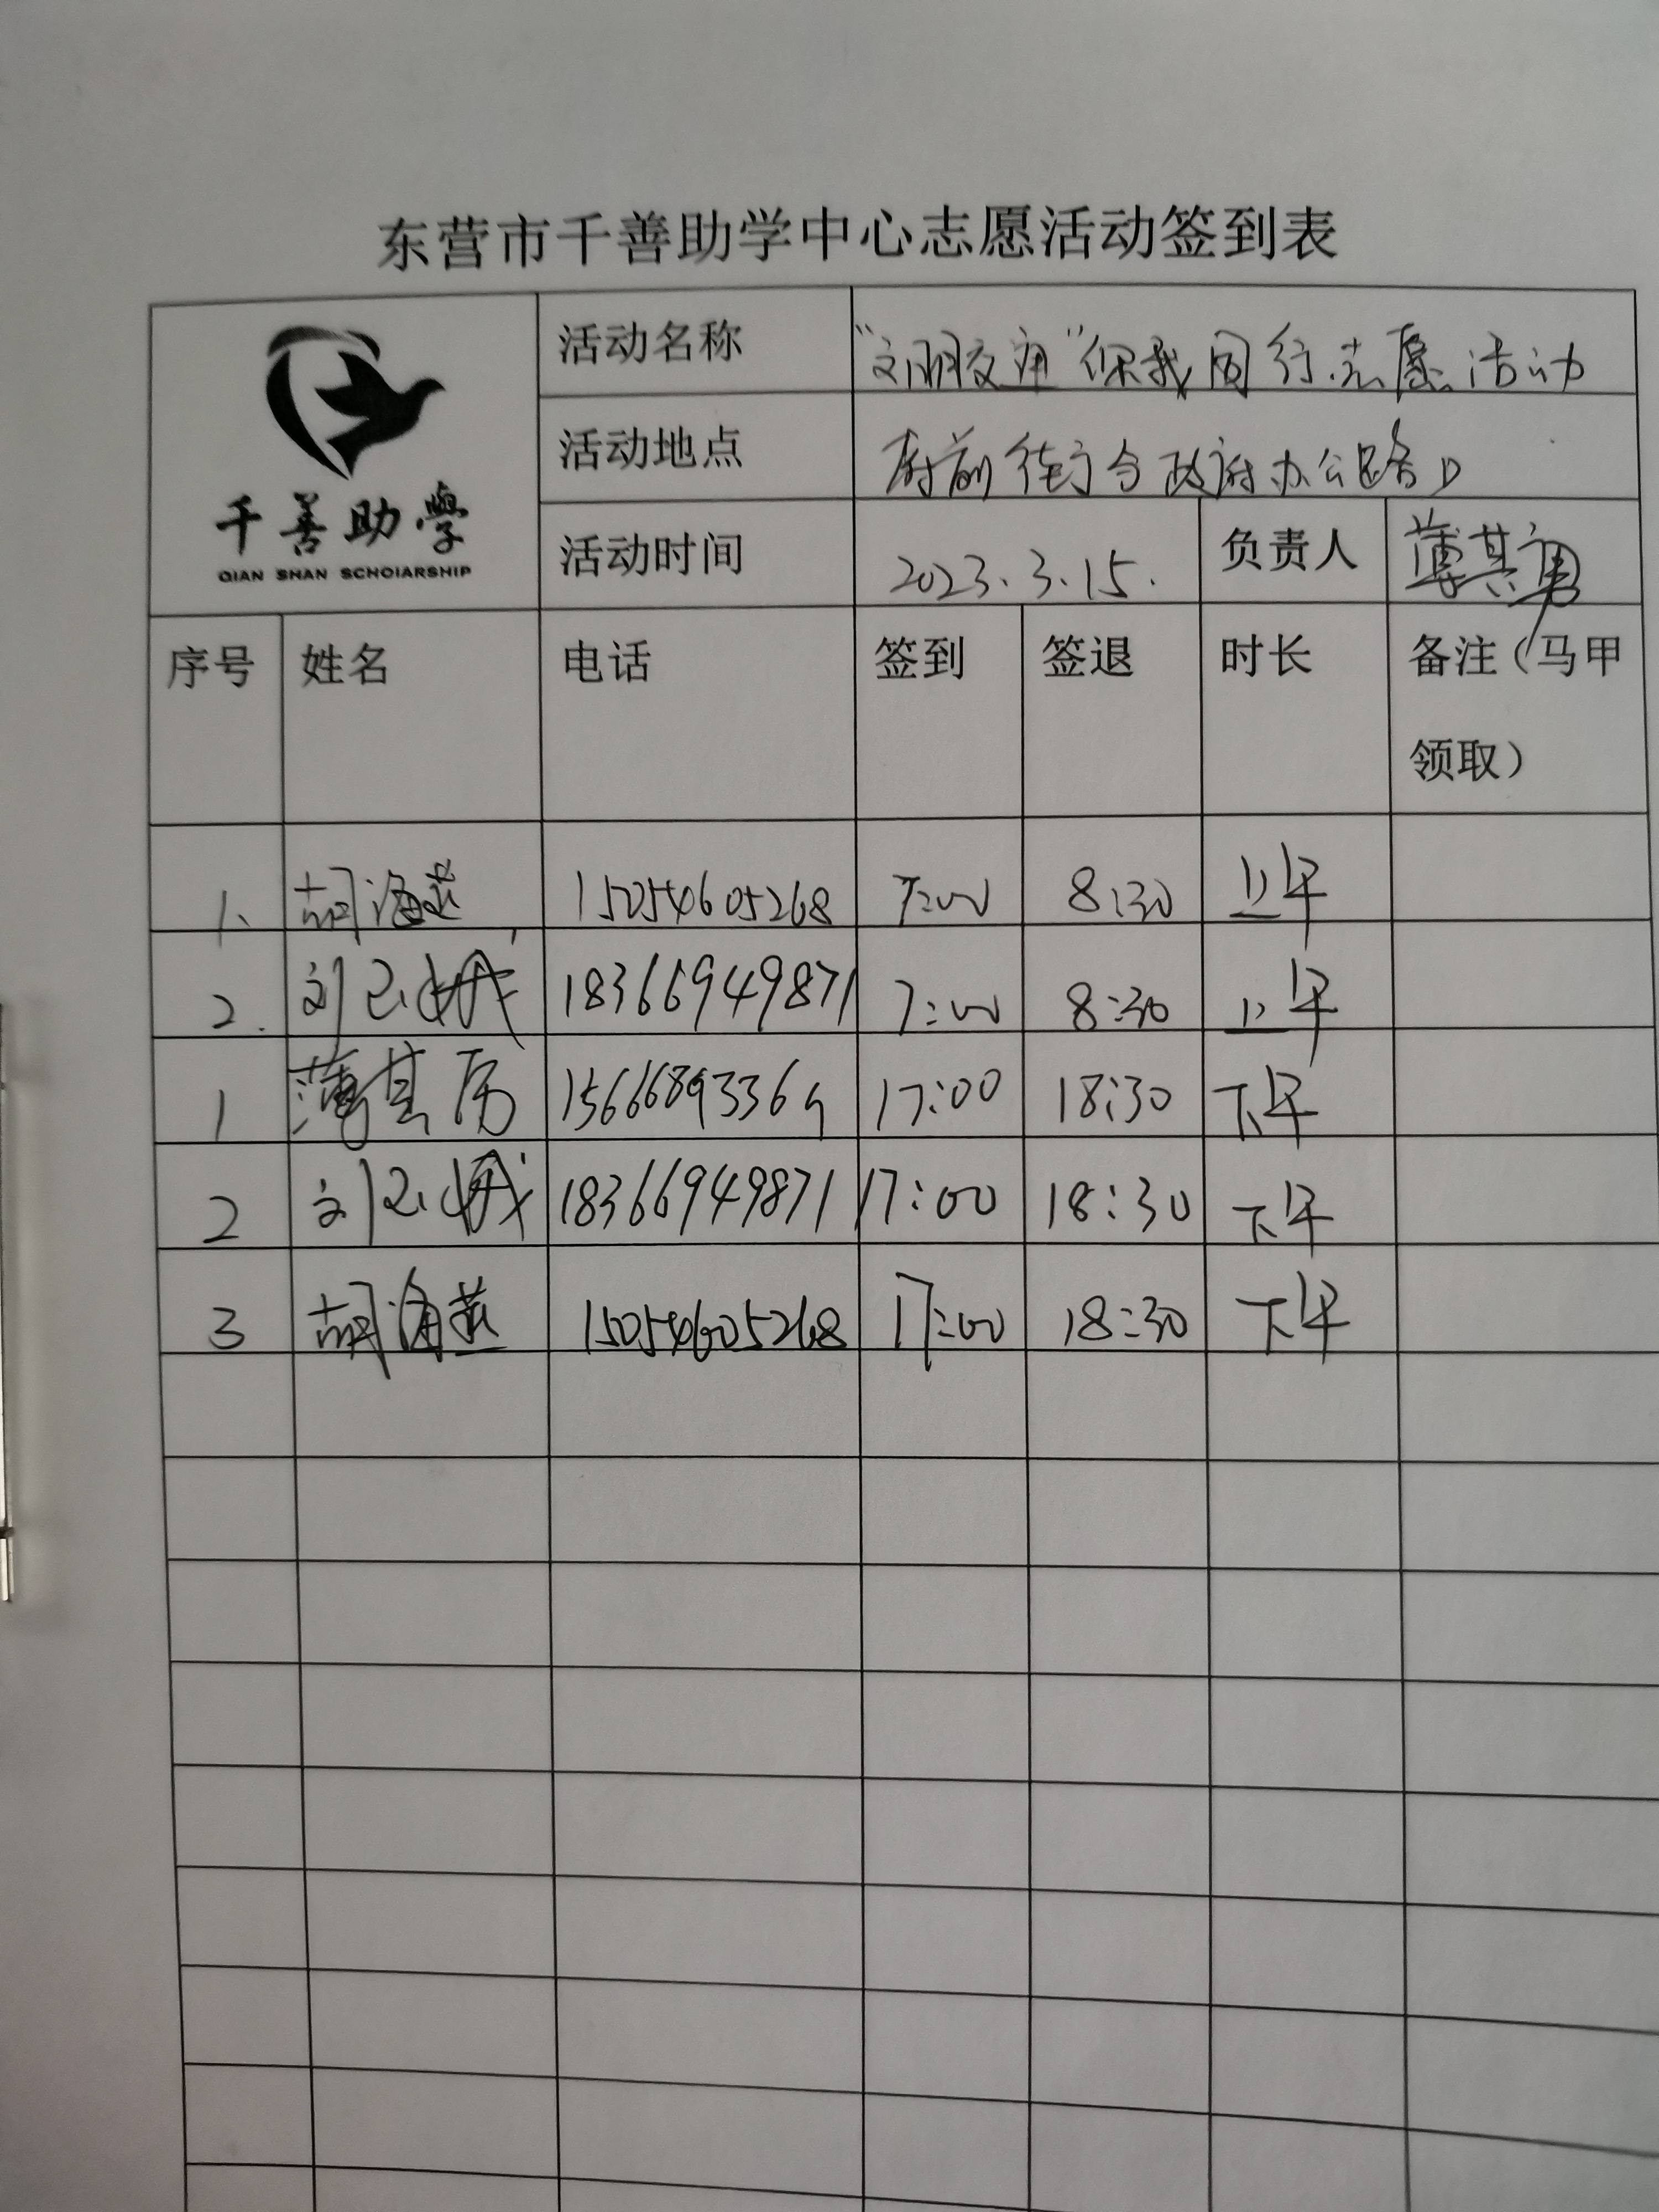 东营市千善助学中心志愿活动签到表
千善助學
QIAN SHAN SCHOIARSHIP
活动名称 "文明交通"你我同行志愿活动
活动地点 府前街与政府办公路口
活动时间 2023.3.15. 负责人 薄其勇
序号 姓名 电话 签到 签退 时长 备注（马甲
领取）
1、 胡海燕 15054605268 7:00 8:30 上午
2. 刘 18366949871 7:00 8:30 上午
1 薄其 1566689336 17:00 18:30 下午
2 刘 18366949871 17:00 18:30 下午
3 胡海燕 15054605268 17:00 18:30 下午